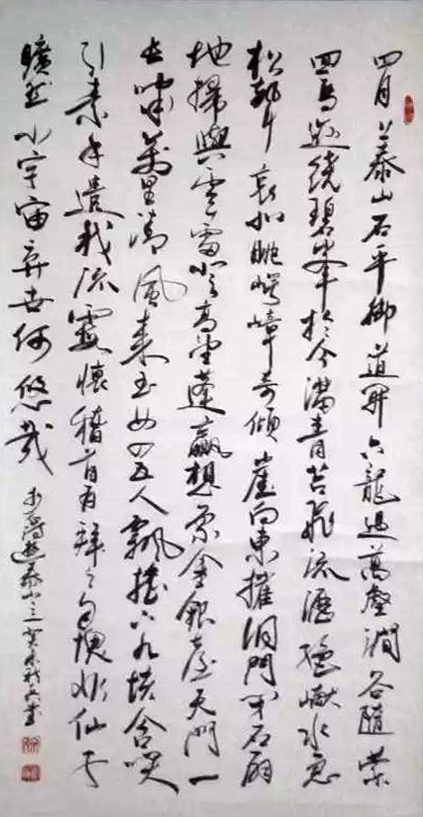 四月上泰山石平御道开六龍過萬壑澗谷隨縈
回馬迹繞碧峰於今滿青苔飛流灑絕巘水急
松聲哀北眺崿嶂奇傾崖向東摧洞門閉石扇
地底興雲雷登高望蓬瀛想象金銀臺天門一
长嘯萬里清風来玉女四五人飄飖下九垓含笑
引素手遺我流霞杯稽首再拜之自愧非仙才
曠然小宇宙弃世何悠哉
游泰山之一